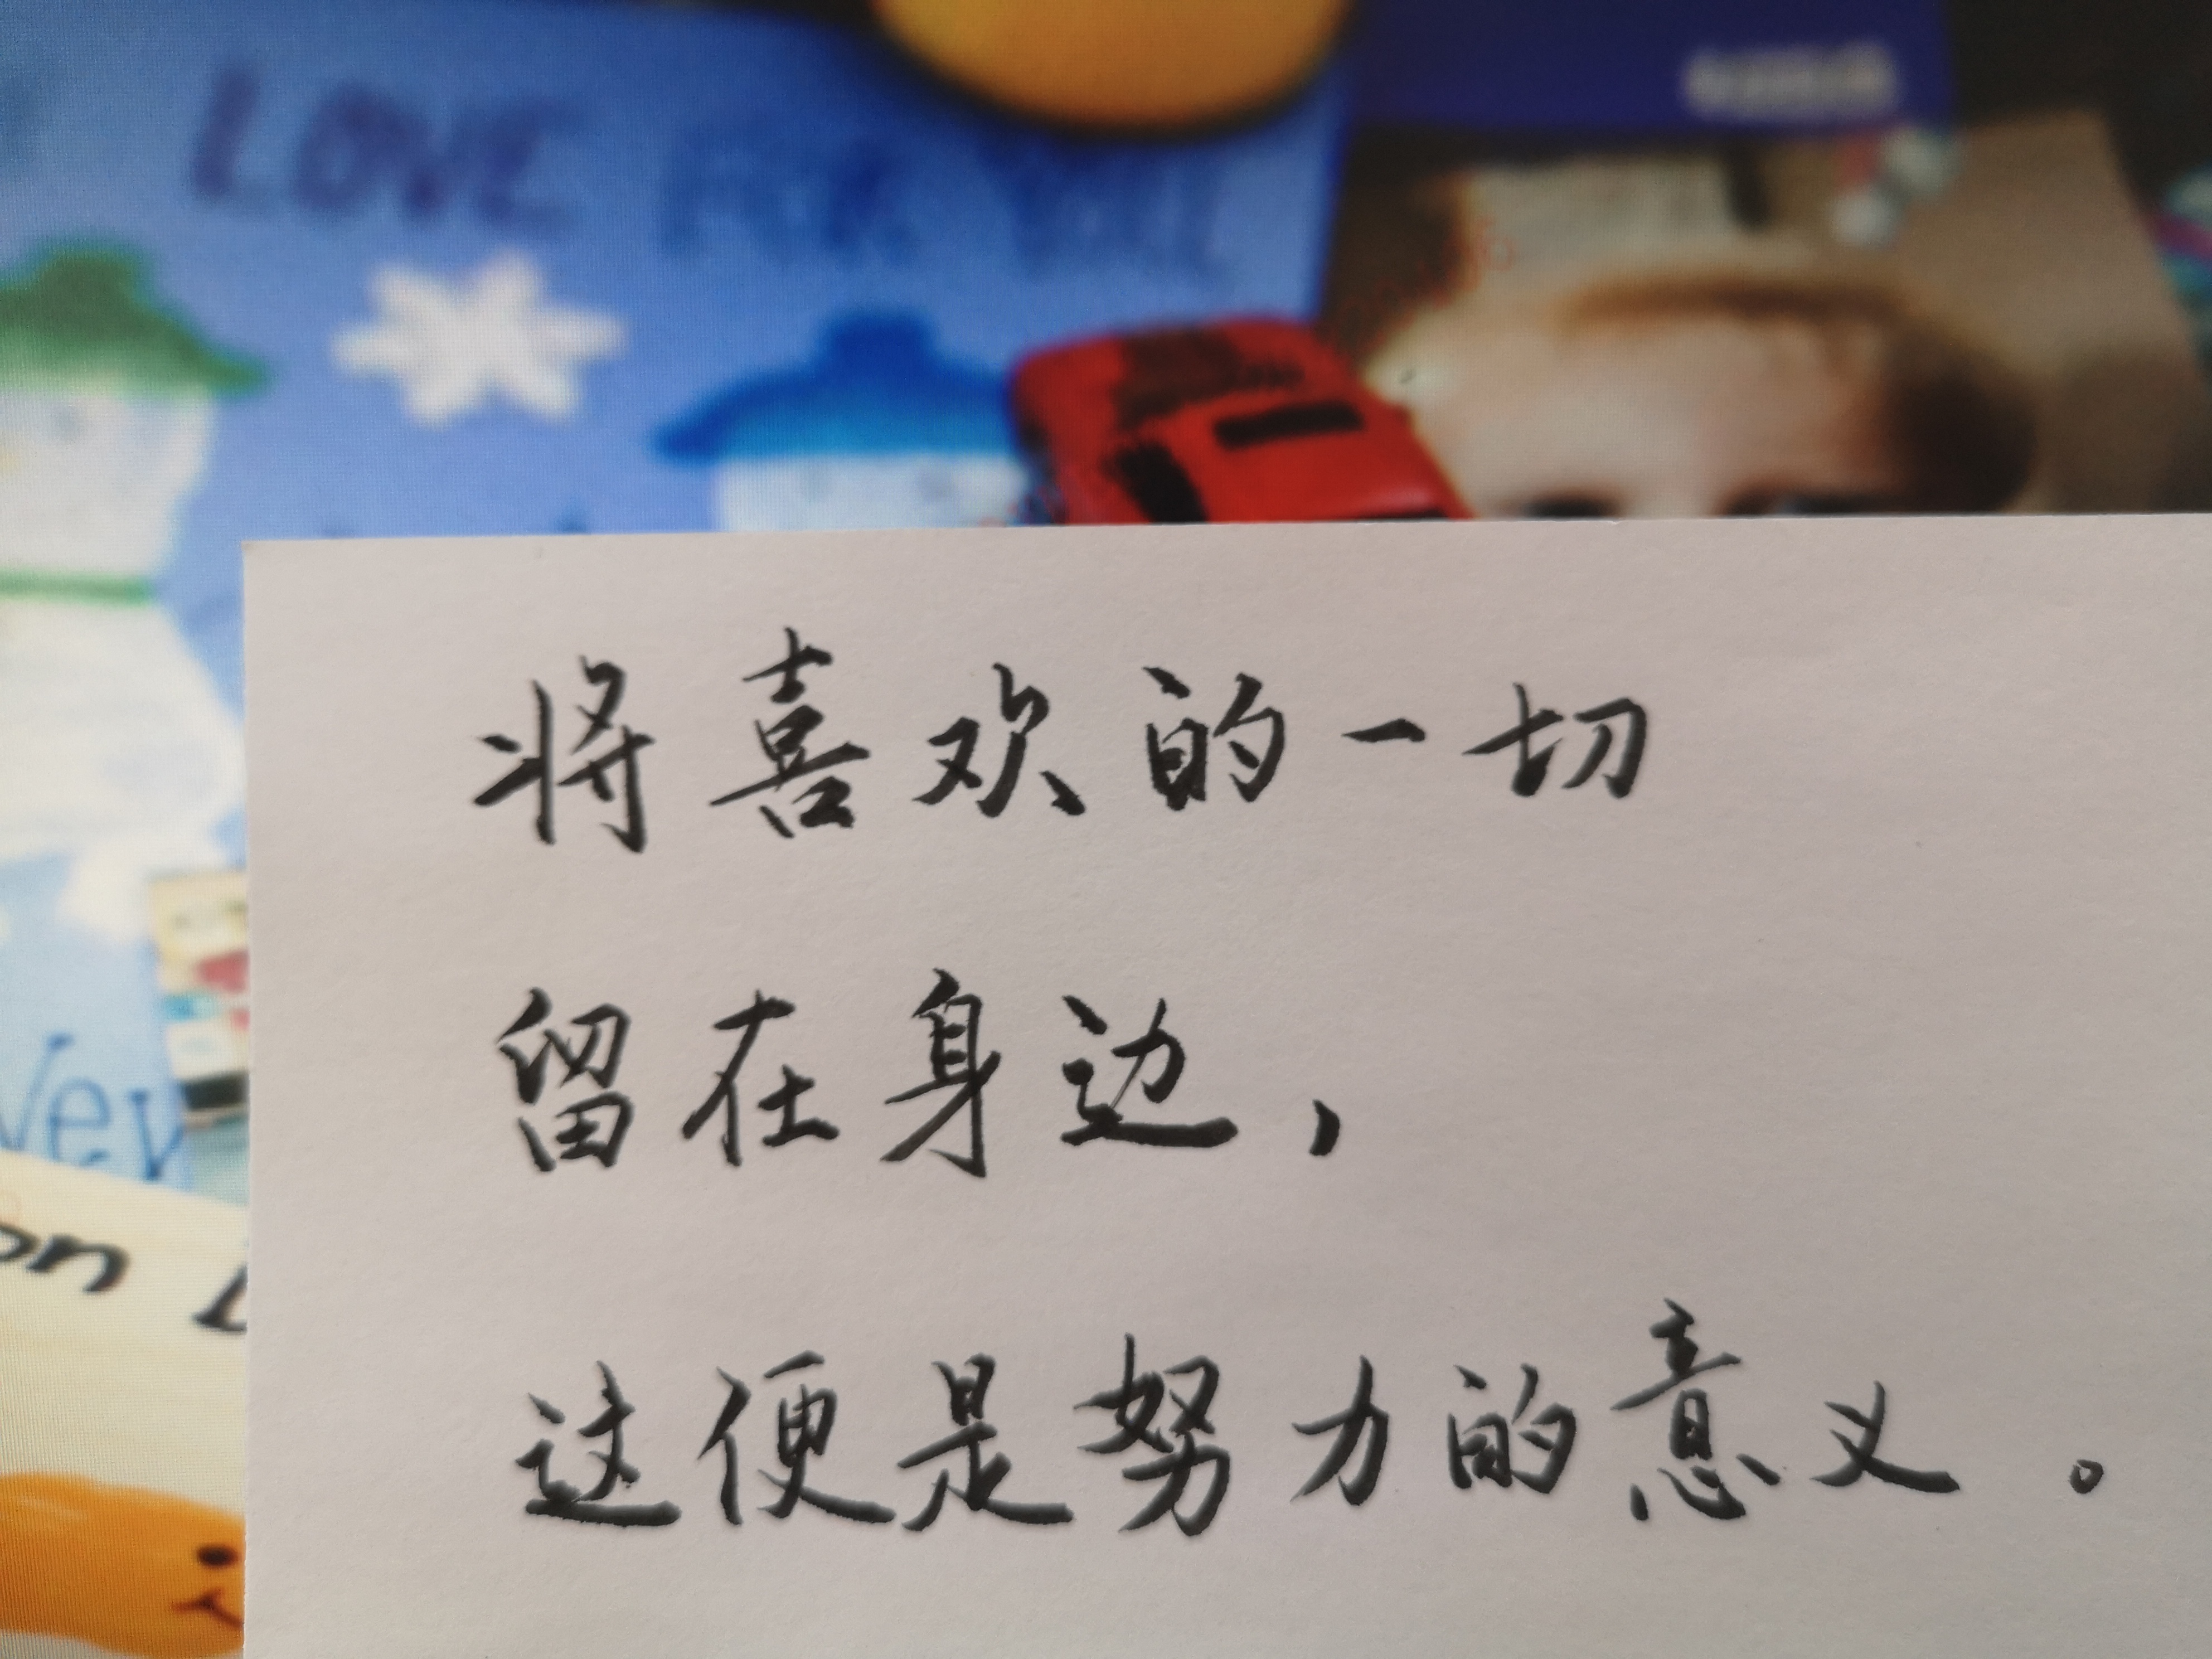 LOVE
将喜欢的一切
留在身边，
这便是努力的意义。